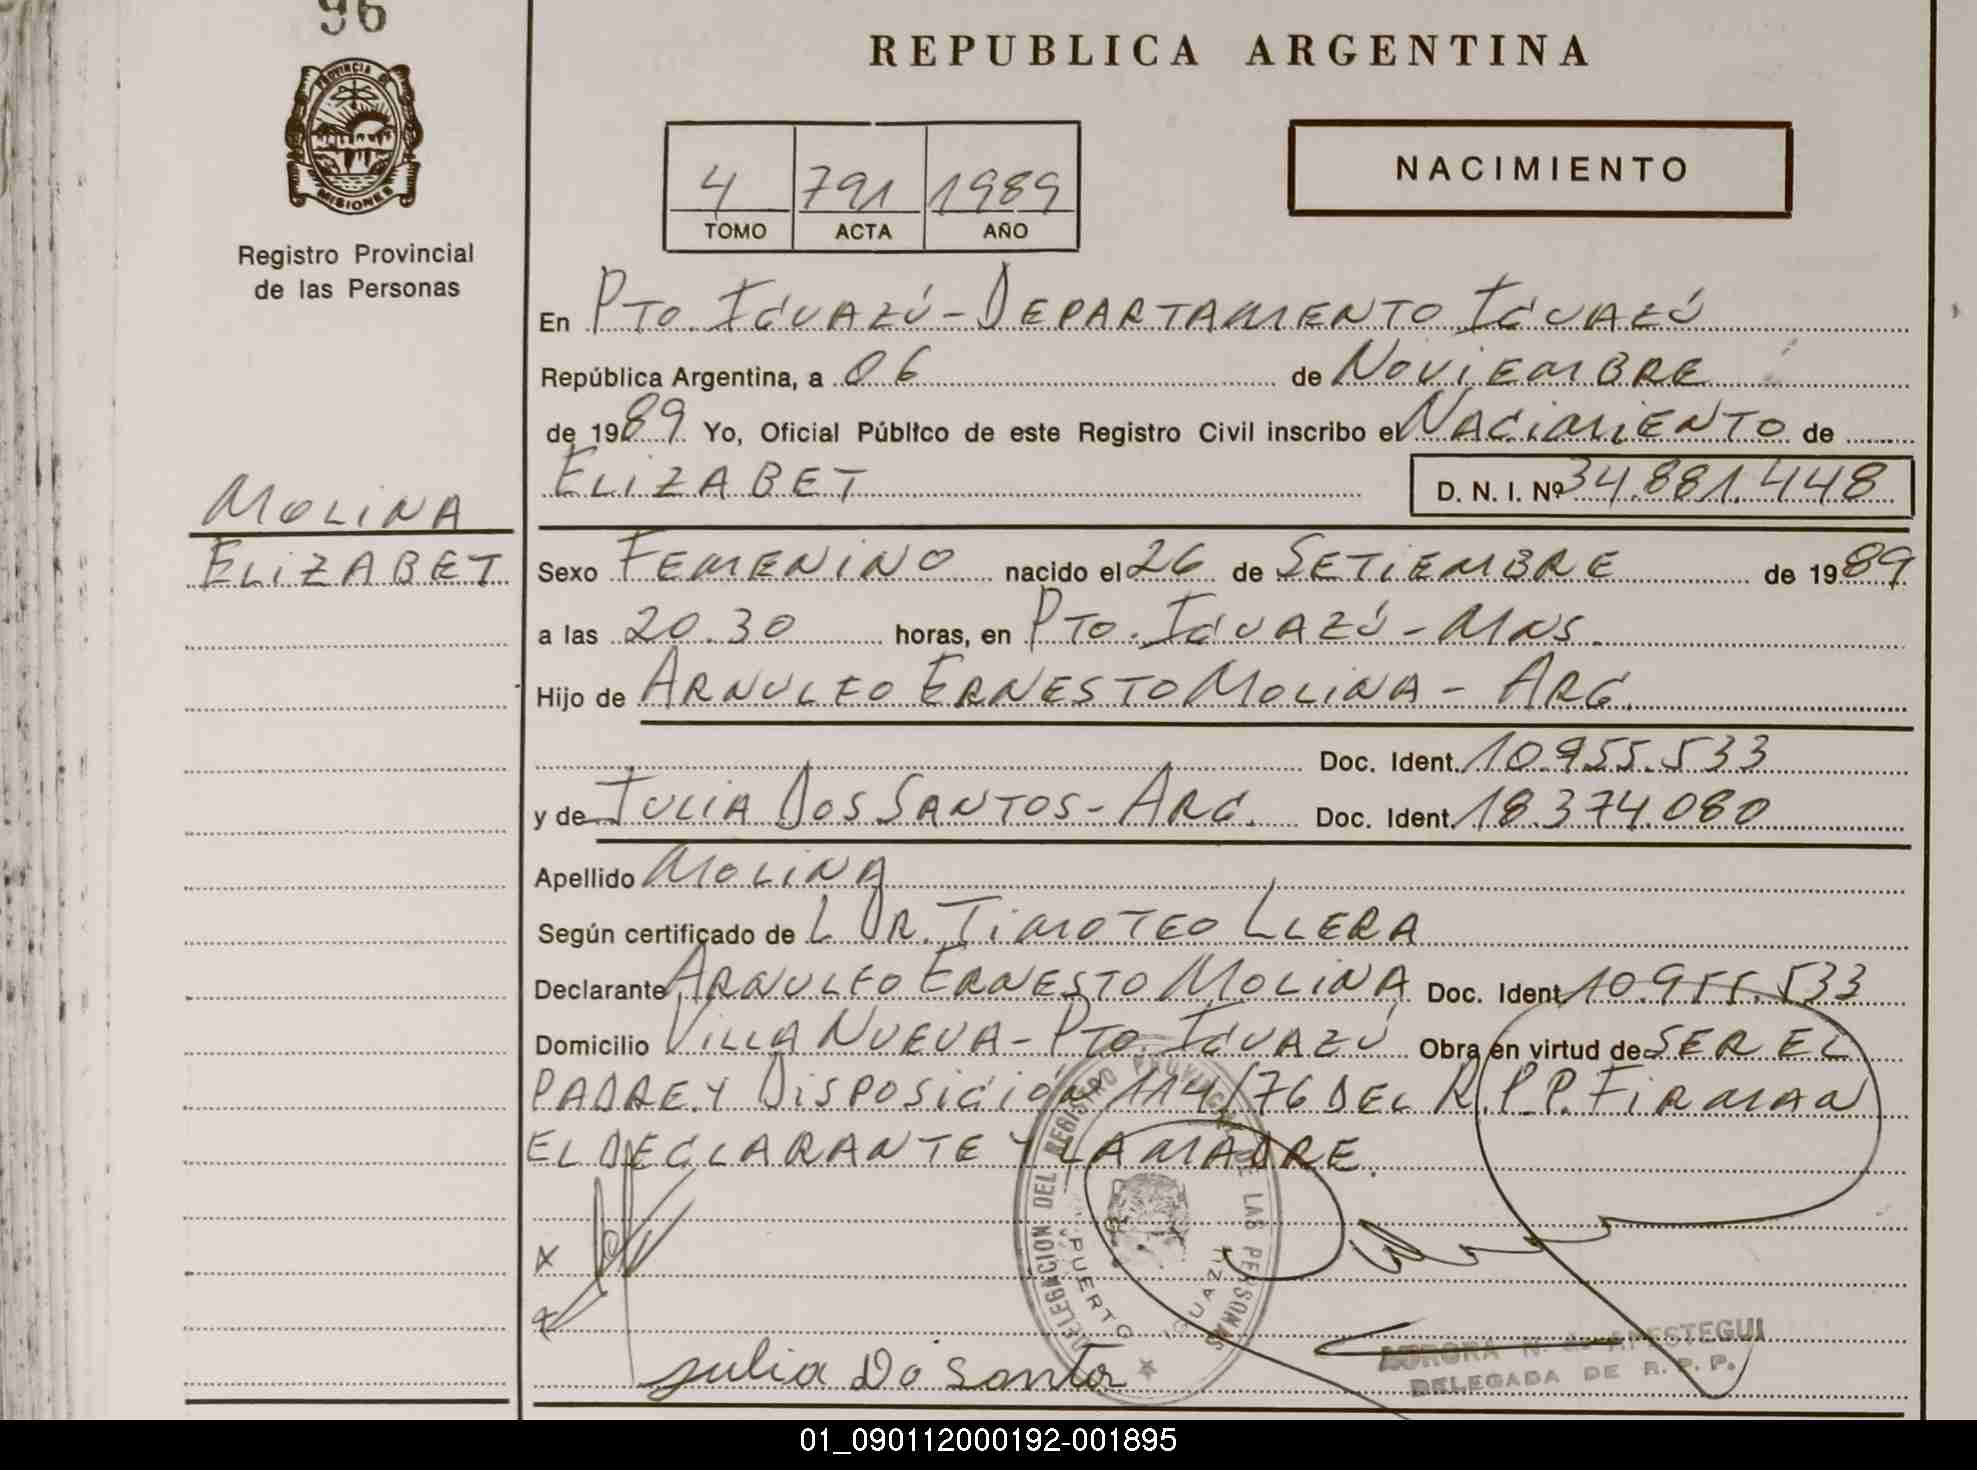 96
PROVINCIA DE
MISIONES
Registro Provincial
de las Personas
MOLINA
ELIZABET
REPUBLICA ARGENTINA
4 791 1989
TOMO ACTA AÑO
NACIMIENTO
En PTO. IGUAZÚ - DEPARTAMENTO IGUAZÚ
República Argentina, a 06 de NOVIEMBRE
de 1989 Yo, Oficial Público de este Registro Civil inscribo el NACIMIENTO de
ELIZABET D. N. I. Nº 34.881.448
Sexo FEMENINO nacido el 26 de SETIEMBRE de 1989
a las 20.30 horas, en PTO. IGUAZÚ - MNS.
Hijo de ARNULFO ERNESTO MOLINA - ARG.
Doc. Ident. 10.955.533
y de JULIA DOS SANTOS - ARG. Doc. Ident. 18.374.080
Apellido MOLINA
Según certificado de L DR. TIMOTEO LLERA
Declarante ARNULFO ERNESTO MOLINA Doc. Ident. 10.955.533
Domicilio VILLA NUEVA - PTO. IGUAZÚ Obra en virtud de SER EL
PADRE Y DISPOSICIÓN 114/76 DEL R.P.P. FIRMAN
EL DECLARANTE Y LA MADRE.
DELEGACION DEL REGISTRO PROVINCIAL DE LAS PERSONAS
PUERTO IGUAZU
Julia Do Santo
AURORA N. de APESTEGUI
DELEGADA DE R. P. P.
01_090112000192-001895